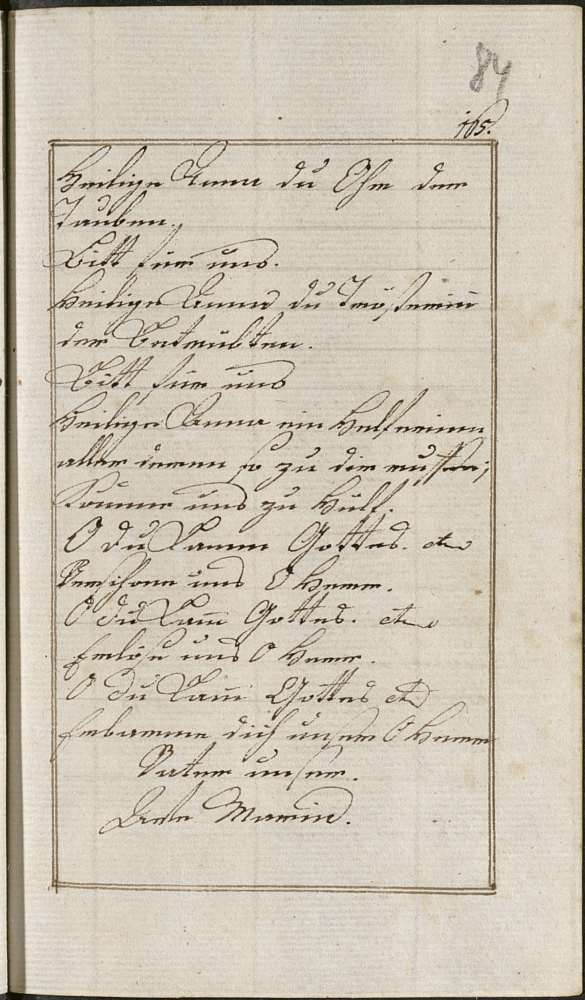 84
105.
Heilige Anna du Ohr der
Tauben.
Bitt für uns.
Heilige Anna du Trösterin
der Betrübten.
Bitt für uns
Heilige Anna ein Helferinn
aller deren so zu dir ruffen;
Komme uns zu Hülf.
O du Lamm Gottes. etc
Verschone uns O Herr.
O du Lam̄ Gottes. etc
Erlöse uns O Herr.
O du Lam̄ Gottes etc
Erbarme dich unser O Herr
Vater unser.
Ave Maria.